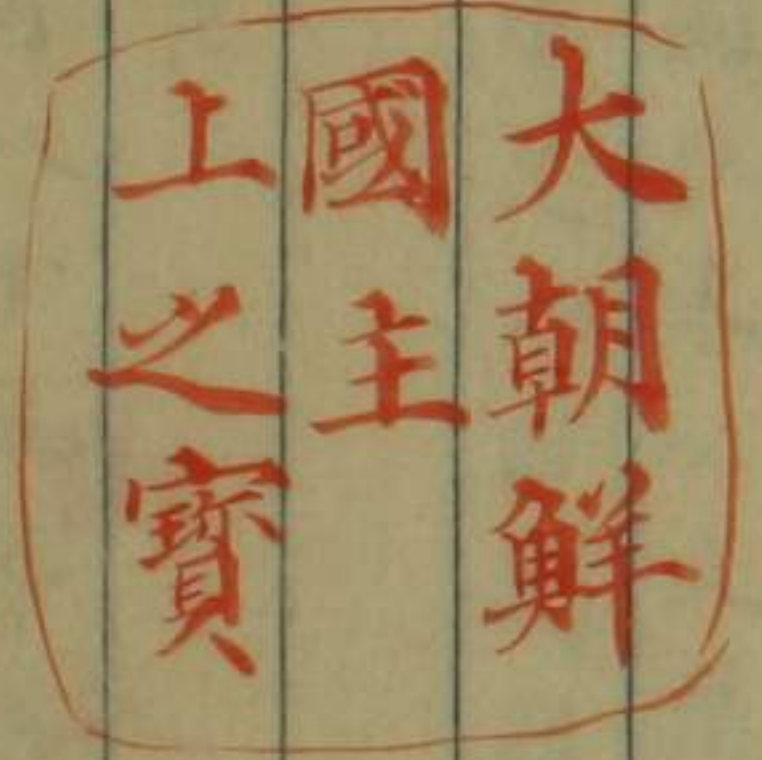 大朝鮮
國主
上之寶